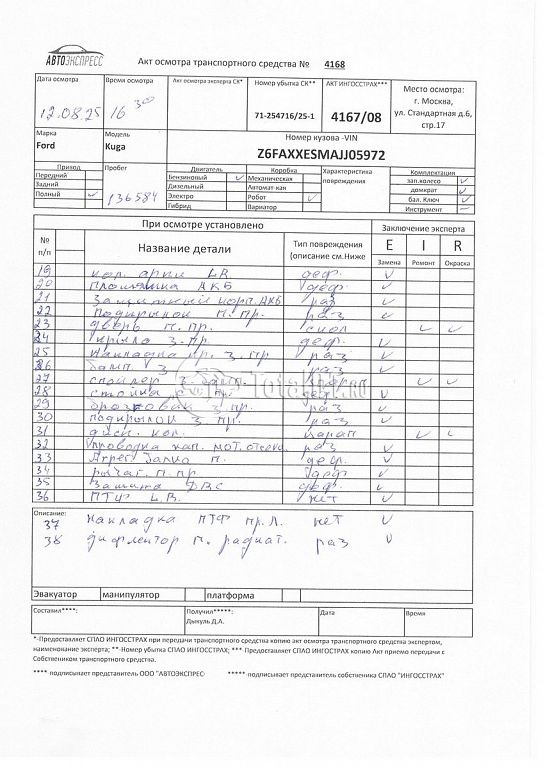 АВТОЭКСПРЕСС
Акт осмотра транспортного средства № 4168
Дата осмотра Время осмотра Акт осмотра эксперта СК* Номер убытка СК** АКТ ИНГОССТРАХ*** Место осмотра:
г. Москва,
ул. Стандартная д.6,
стр.17
12.08.25 16 30 71-254716/25-1 4167/08
Марка Модель Номер кузова -VIN
Ford Kuga Z6FAXXESMAJJ05972
Привод Пробег Двигатель Коробка Характеристика повреждения Комплектация
Передний Бензиновый ✓ Механическая зап.колесо ✓
Задний Дизельный Автомат-кая домкрат ✓
Полный ✓ 136584 Электро Робот ✓ бал. Ключ ✓
Гибрид Вариатор Инструмент –
При осмотре установлено Заключение эксперта
№ п/п Название детали Тип повреждения (описание см.Ниже E I R
Замена Ремонт Окраска
19 арки L.R. деф. ✓
20 Площадка АКБ деф. ✓
21 Защитный корп. АКБ раз ✓
22 Подкрылок п. пр. раз ✓
23 дверь п. пр. скол ✓ ✓
24 крыло з. пр. деф. ✓
25 накладка з. пр раз ✓
26 бамп. з раз ✓
27 спойлер з. бамп. ✓ ✓
28 пр. деф. ✓
29 з. пр. раз ✓
30 подкрылок з. пр. раз ✓
31 диск. кол. царап ✓ ✓
32 проводка кап. мот. отсека раз ✓
33 п. деф. ✓
34 рычаг п. пр. деф ✓
35 Защита ДВС деф. ✓
36 ПТФ L.R. нет ✓
Описание:
37 накладка ПТФ пр. л. нет ✓
38 дифлектор п. радиат. раз ✓
Эвакуатор манипулятор платформа
Составил****: Получил*****: Дата Время
Дыкуль Д.А.
*-Предоставляет СПАО ИНГОССТРАХ при передачи транспортного средства копию акт осмотра транспортного средства экспертом,
наименование эксперта; **-Номер убытка СПАО ИНГОССТРАХ; *** Предоставляет СПАО ИНГОСТРАХ копию Акт приемо передачи с
Собствеником транспортного средства.
**** подписывает представитель ООО "АВТОЭКСПРЕС" ***** -подписывает представитель собственика СПАО "ИНГОССТРАХ"